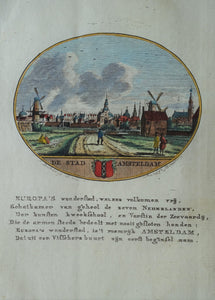 DE STAD AMSTELDAM.
EUROPA'S wonderstad, volkomen vrij,
Schatkamer van geheel de zeven NEDERLANDEN,
Der kunsten kweekschool, en Vorstin der Zeevaardy,
Die de armen steeds bedeelt met nooit geslooten handen:
EUROPA'S wonderstad, is 't AMSTELDAM,
Dat uit een Visschers buurt zijn eerst beginsel nam.